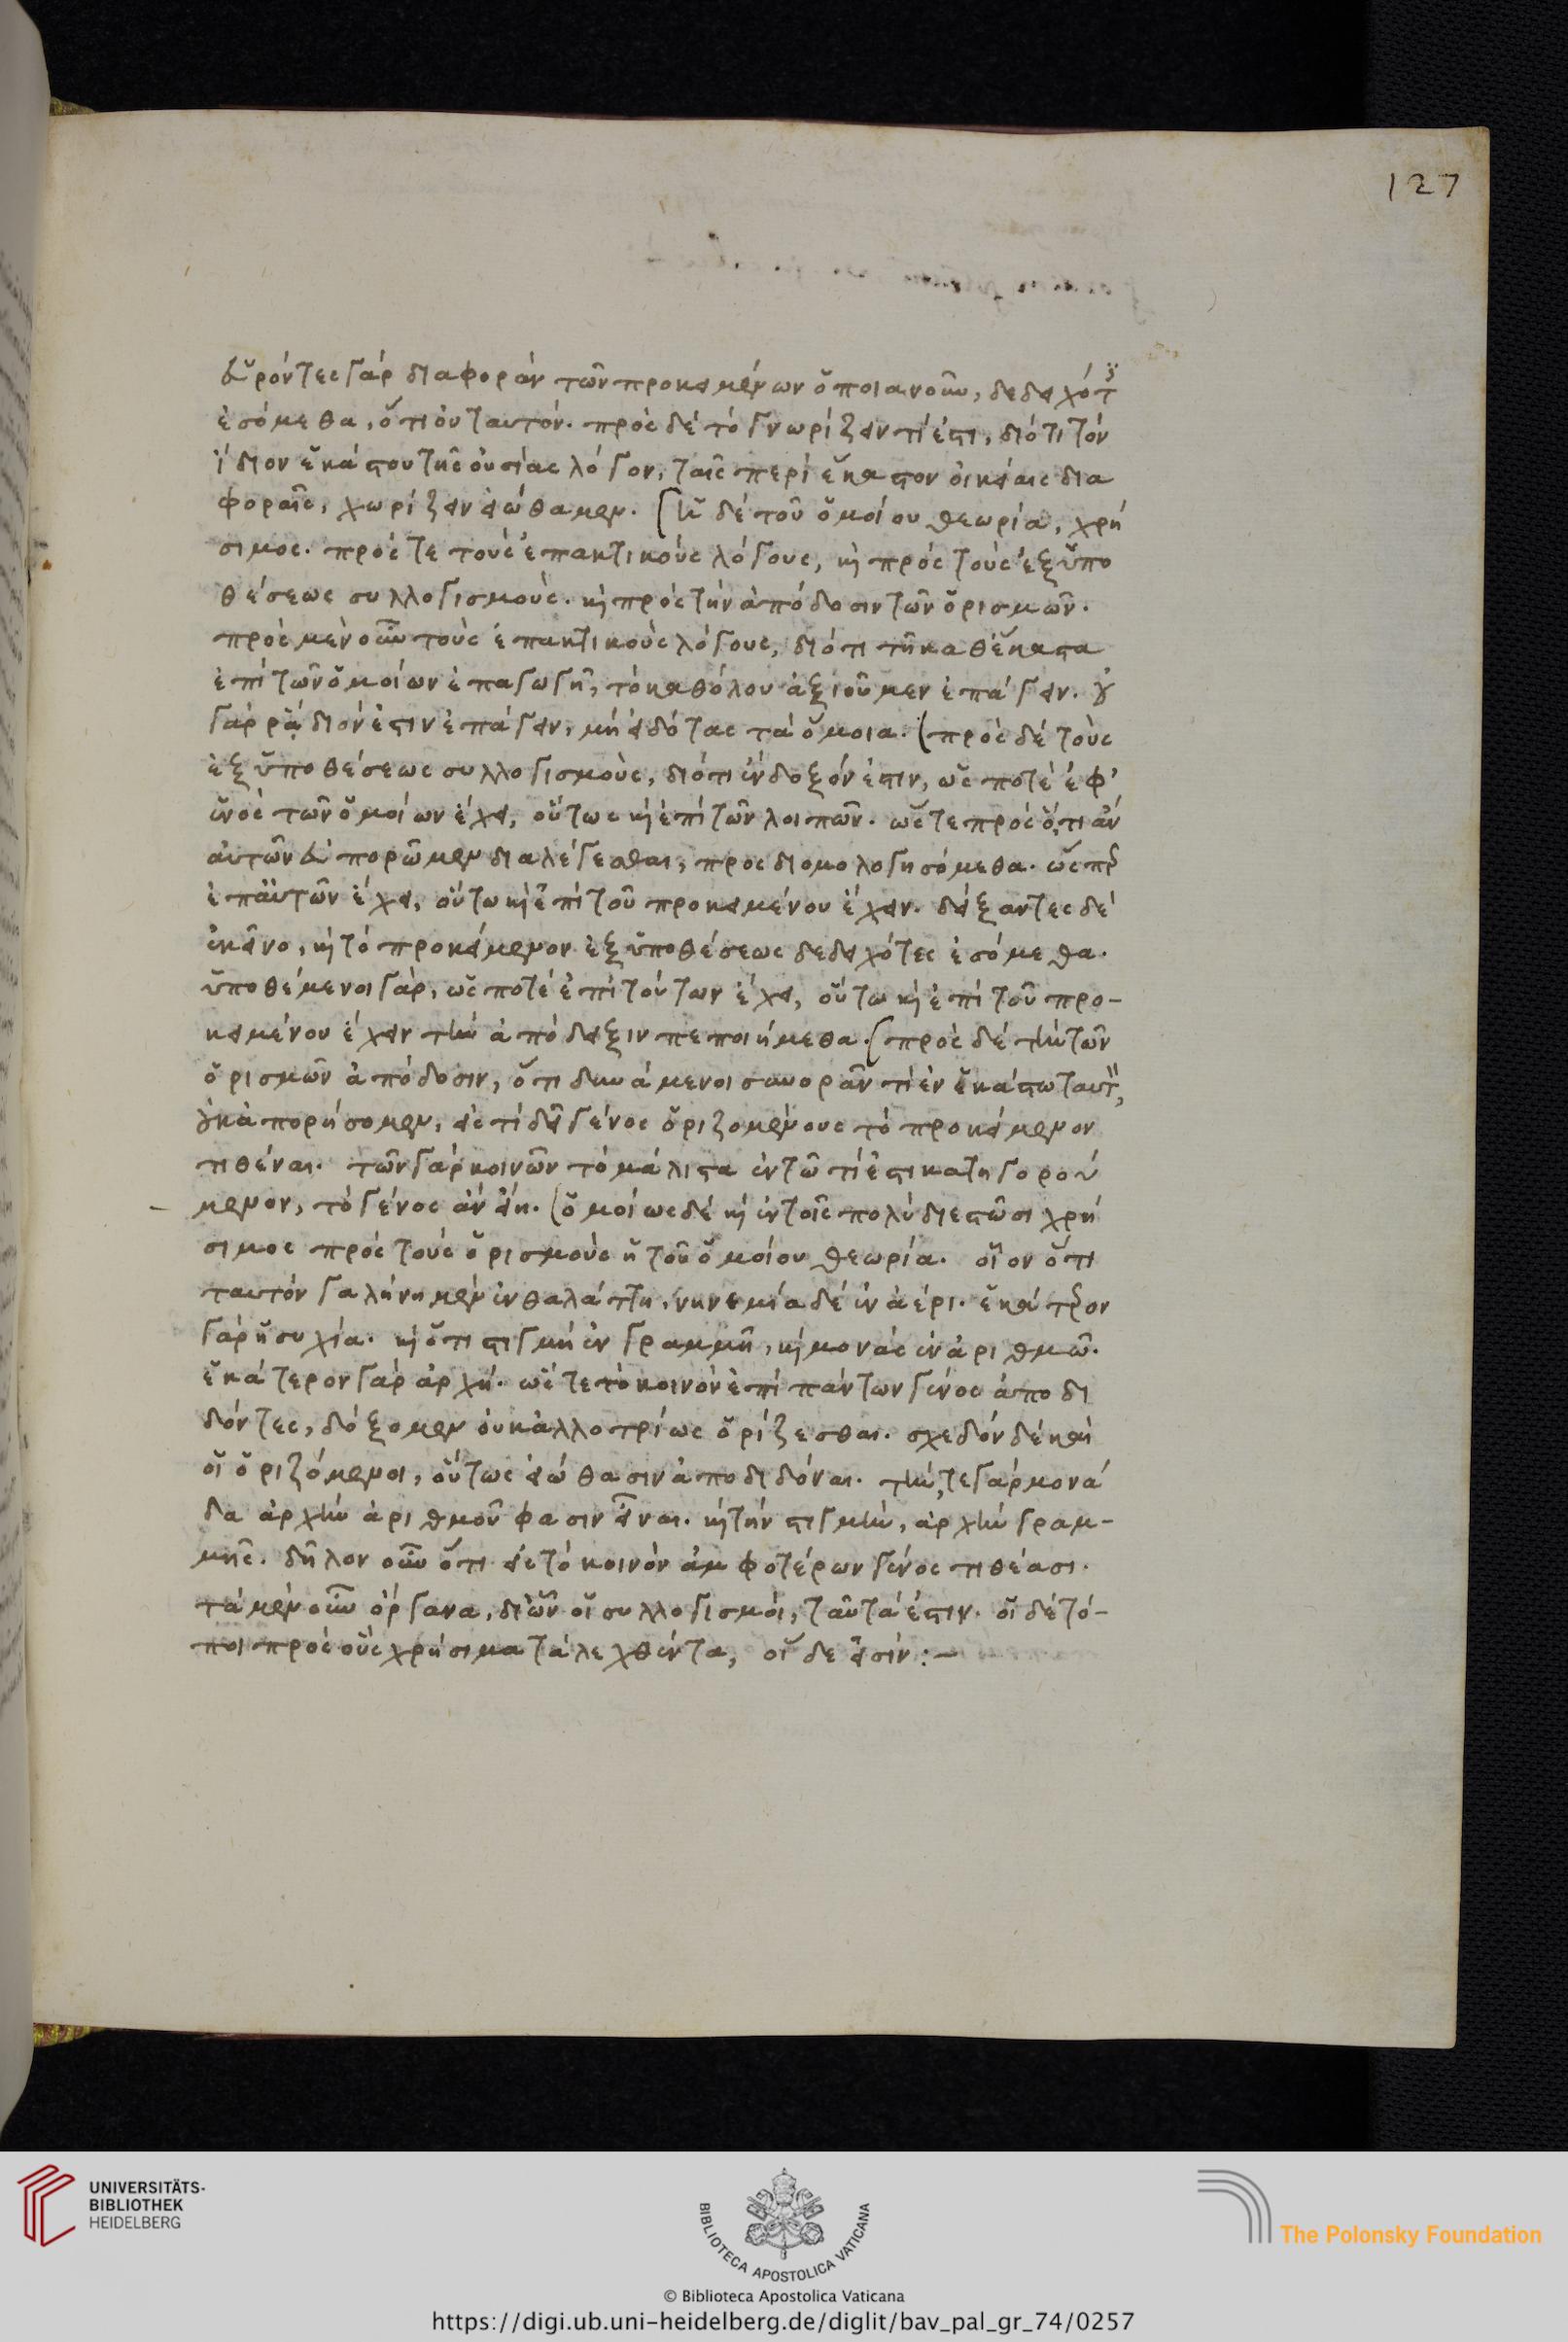 127
εὑρόντες γὰρ διαφορὰν τῶν προκειμένων ὁποιανοῦν, δεδειχότες
ἐσόμεθα, ὅτι οὐ ταυτόν. πρὸς δὲ τὸ γνωρίζειν τί ἐστι, διότι τὸν
ἴδιον ἑκάστου τῆς οὐσίας λόγον, ταῖς περὶ ἕκαστον οἰκείαις δια
φοραῖς, χωρίζειν εἰώθαμεν. ἡ δὲ τοῦ ὁμοίου θεωρία, χρή
σιμος. πρός τε τοὺς ἐπακτικοὺς λόγους, καὶ πρὸς τοὺς ἐξ ὑπο
θέσεως συλλογισμούς. καὶ πρὸς τὴν ἀπόδοσιν τῶν ὁρισμῶν.
πρὸς μὲν οὖν τοὺς ἐπακτικοὺς λόγους, διότι τῇ καθέκαστα
ἐπὶ τῶν ὁμοίων ἐπαγωγῇ, τὸ καθόλου ἀξιοῦμεν ἐπάγειν. οὐ
γὰρ ῥᾴδιόν ἐστιν ἐπάγειν, μὴ εἰδότας τὰ ὅμοια. πρὸς δὲ τοὺς
ἐξ ὑποθέσεως συλλογισμούς, διότι ἔνδοξόν ἐστιν, ὥς ποτε ἐφ'
ἑνὸς τῶν ὁμοίων ἔχει, οὕτως καὶ ἐπὶ τῶν λοιπῶν. ὥστε πρὸς ὅ,τι ἂν
αὐτῶν εὐπορῶμεν διαλέγεσθαι, προσδιομολογησόμεθα. ὥσπερ
ἐπ' αὐτῶν ἔχει, οὕτω καὶ ἐπὶ τοῦ προκειμένου ἔχειν. δείξαντες δὲ
ἐκεῖνο, καὶ τὸ προκείμενον ἐξ ὑποθέσεως δεδειχότες ἐσόμεθα.
ὑποθέμενοι γάρ, ὥς ποτε ἐπὶ τούτων ἔχει, οὕτω καὶ ἐπὶ τοῦ προ-
κειμένου ἔχειν τὴν ἀπόδειξιν πεποιήμεθα. πρὸς δὲ τὴν τῶν
ὁρισμῶν ἀπόδοσιν, ὅτι δυνάμενοι συνορᾶν τί ἐν ἑκάστω ταυτὸν,
οὐκ ἀπορήσομεν, εἰς τί δεῖ γένος ὁριζομένους τὸ προκείμενον
τιθέναι. τῶν γὰρ κοινῶν τὸ μάλιστα ἐν τῶ τί ἐστι κατηγορού
μενον, τὸ γένος ἂν εἴη. ὁμοίως δὲ καὶ ἐν τοῖς πολὺ διεστῶσι χρή
σιμος πρὸς τοὺς ὁρισμοὺς ἡ τοῦ ὁμοίου θεωρία. οἷον ὅτι
ταυτὸν γαλήνη μὲν ἐν θαλάττη, νηνεμία δὲ ἐν ἀέρι. ἑκάτερον
γὰρ ἡσυχία. καὶ ὅτι στιγμὴ ἐν γραμμῇ, καὶ μονὰς ἐν ἀριθμῶ.
ἑκάτερον γὰρ ἀρχή. ὥστε τὸ κοινὸν ἐπὶ πάντων γένος ἀποδι
δόντες, δόξομεν οὐκ ἀλλοτρίως ὁρίζεσθαι. σχεδὸν δὲ καὶ
οἱ ὁριζόμενοι, οὕτως εἰώθασιν ἀποδιδόναι. τήν,τε γὰρ μονά
δα ἀρχὴν ἀριθμοῦ φασιν εἶναι. καὶ τὴν στιγμὴν, ἀρχὴν γραμ-
μῆς. δῆλον οὖν ὅτι εἰς τὸ κοινὸν ἀμφοτέρων γένος τιθέασι.
τὰ μὲν οὖν ὄργανα, δι' ὧν οἱ συλλογισμοὶ, ταῦτά ἐστιν. οἱ δὲ τό-
ποι πρὸς οὓς χρήσιμα τὰ λεχθέντα, οἵδε εἰσίν:–
UNIVERSITÄTS-
BIBLIOTHEK
HEIDELBERG
BIBLIOTECA APOSTOLICA VATICANA
The Polonsky Foundation
© Biblioteca Apostolica Vaticana
https://digi.ub.uni-heidelberg.de/diglit/bav_pal_gr_74/0257